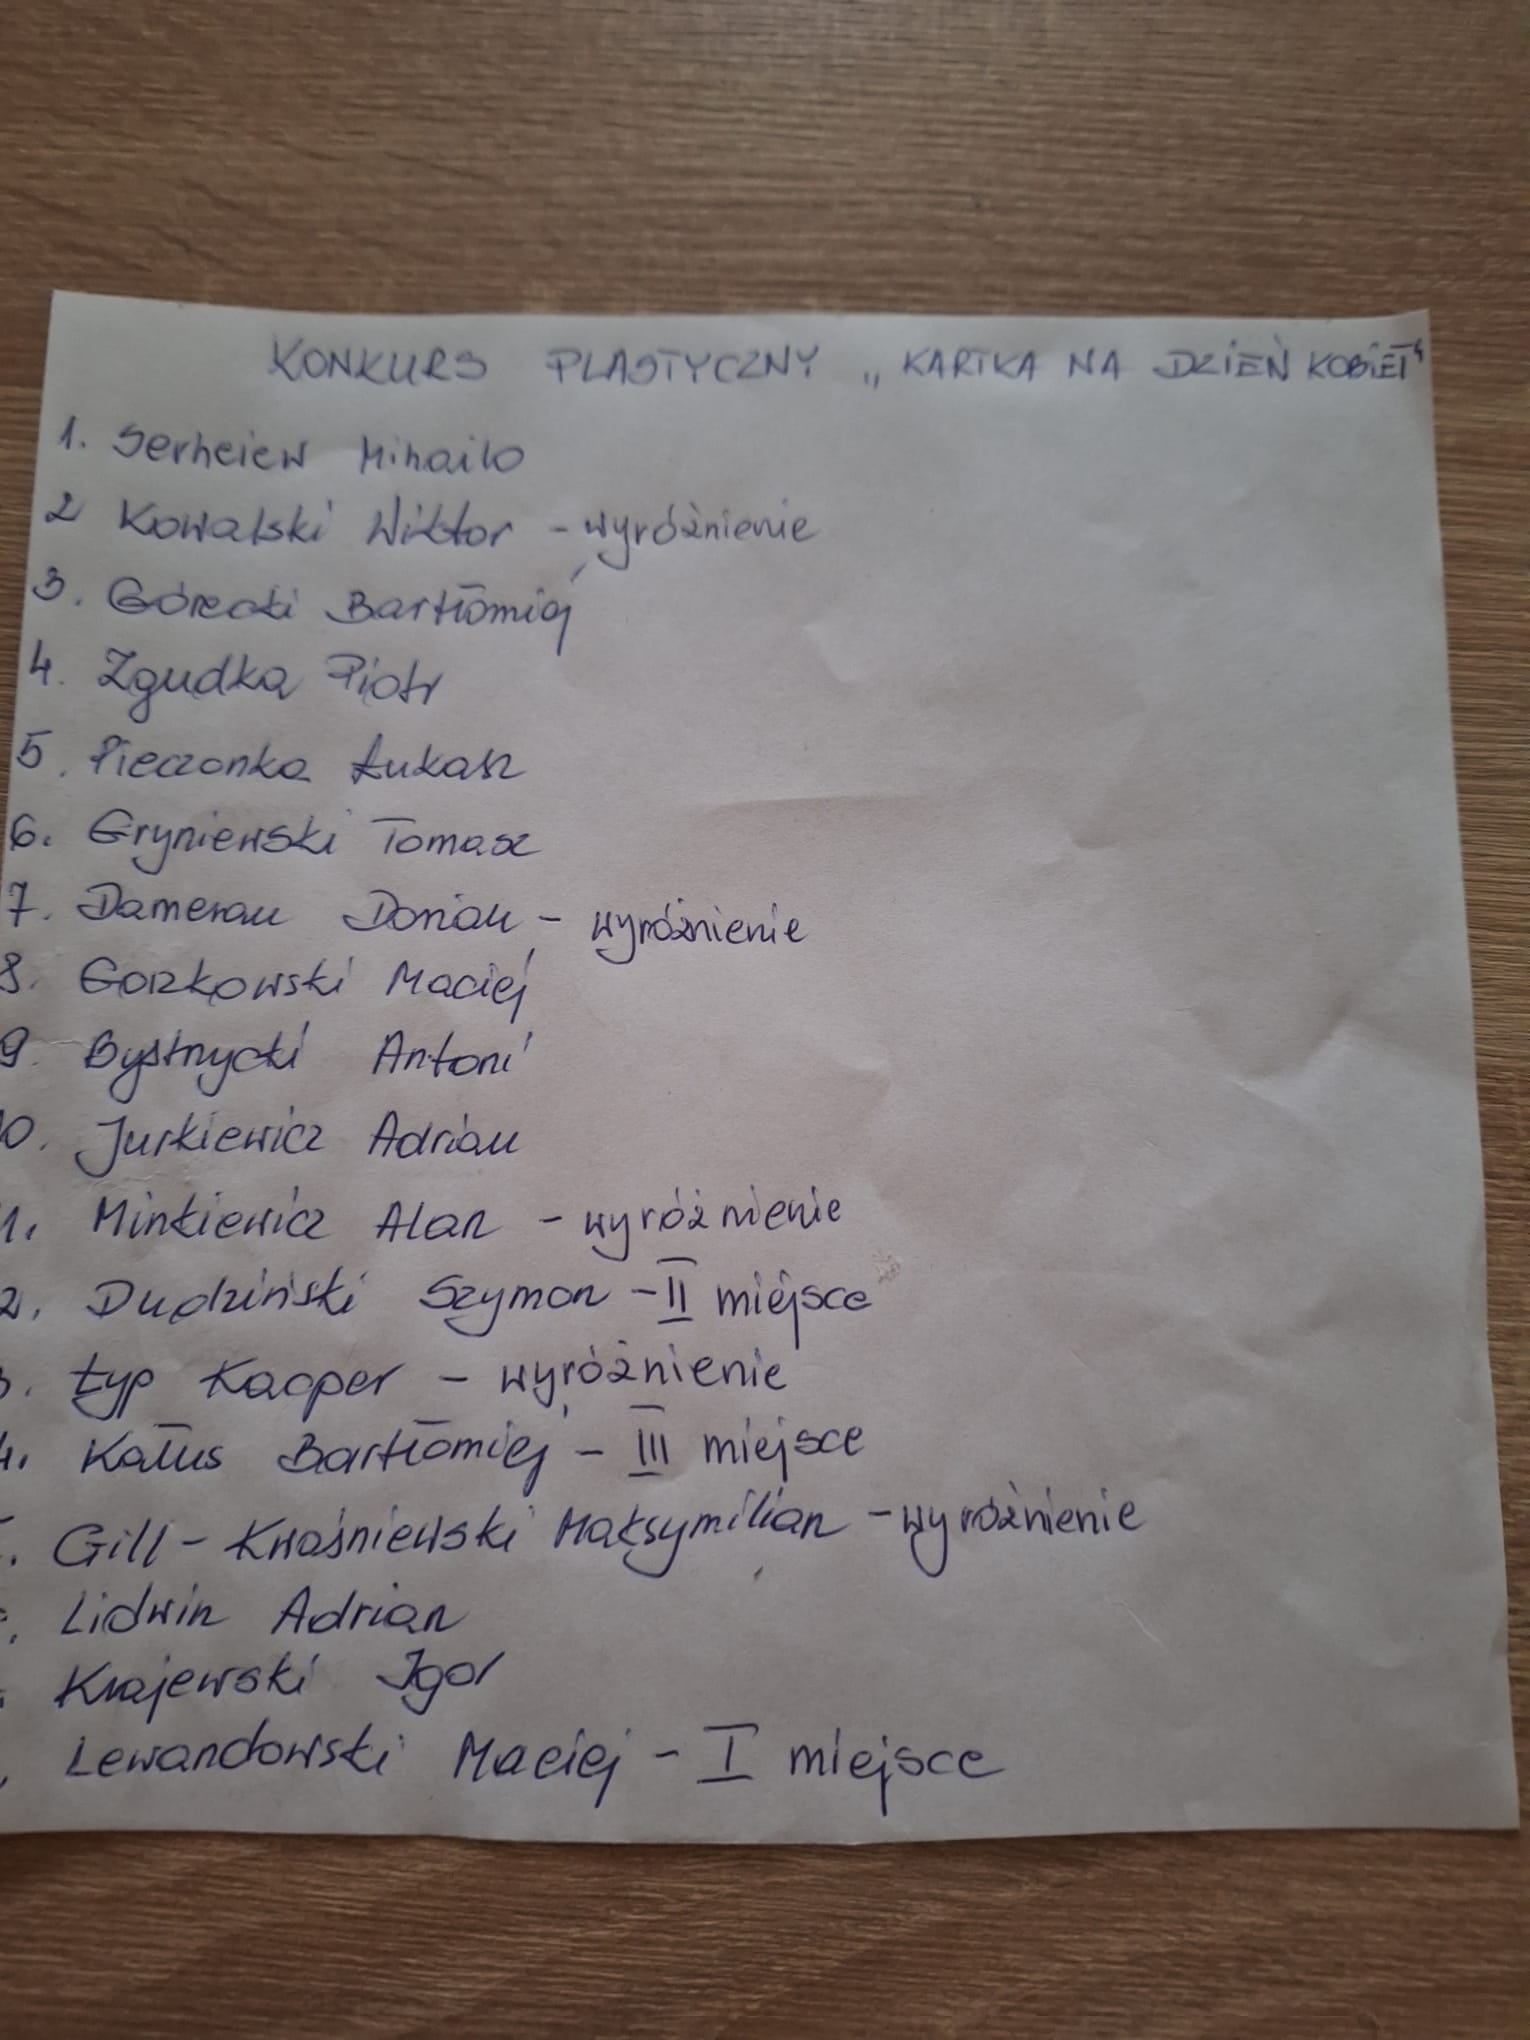 KONKURS PLASTYCZNY „KARTKA NA DZIEŃ KOBIET"
1. Serheiew Mihailo
2 Kowalski Wiktor - wyróżnienie
3. Górecki Bartłomiej
4. Zgudka Piotr
5. Pieczonka Łukasz
6. Gryniewski Tomasz
7. Damerau Dorian - wyróżnienie
8. Gorzkowski Maciej
9. Bystrycki Antoni
0. Jurkiewicz Adrian
1. Minkiewicz Alan - wyróżnienie
2. Dudziński Szymon - II miejsce
3. Łyp Kacper - wyróżnienie
4. Kałus Bartłomiej - III miejsce
. Gill - Kwaśniewski Maksymilian - wyróżnienie
. Lidwin Adrian
Krajewski Igor
Lewandowski Maciej - I miejsce